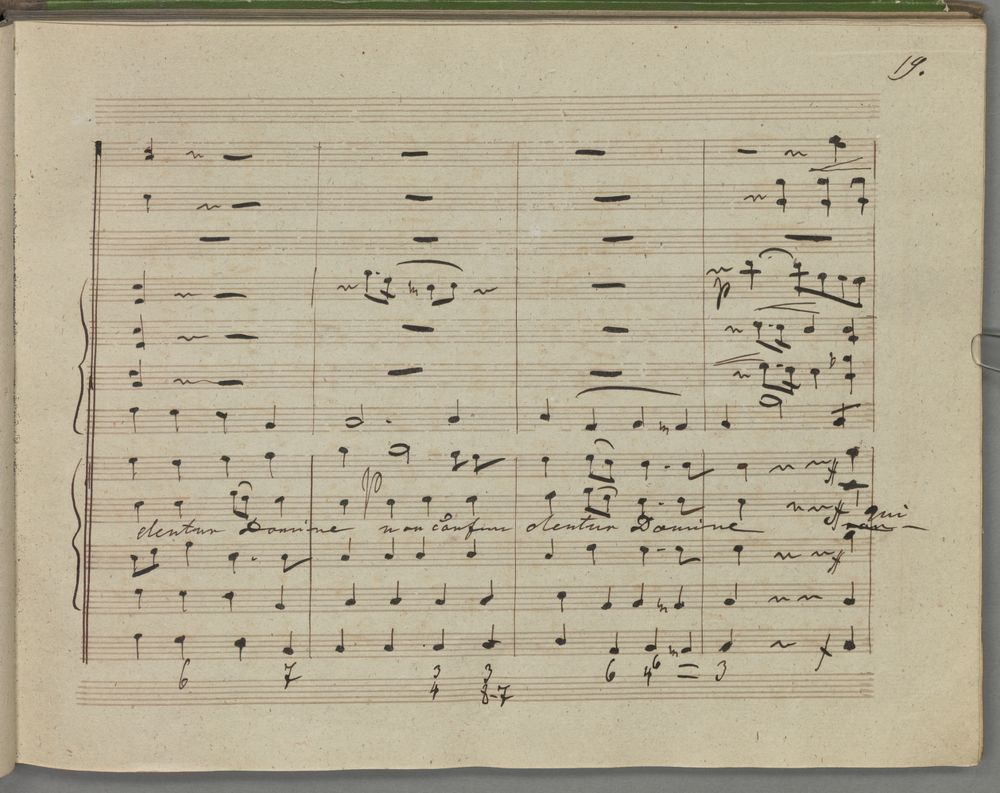 19.
p
p
dentur Domine non confun dentur Domine qui
non
6 7 3 3 6 4 6 = 3
4 8-7